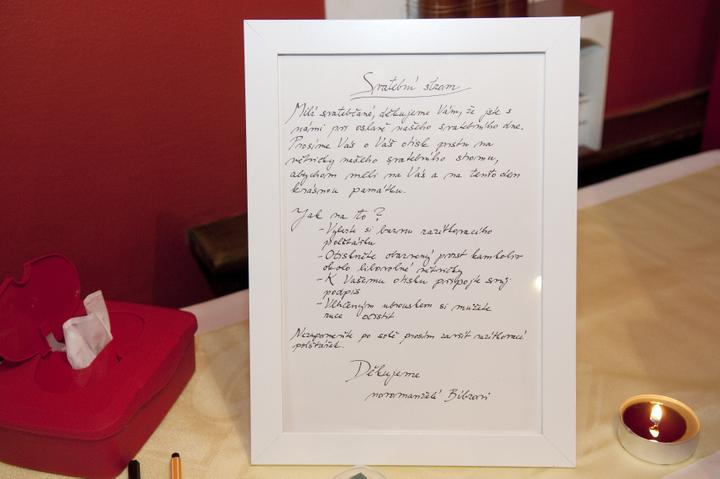 Svatební strom
Milí svatebčané, děkujeme Vám, že jste s
námi při oslavě našeho svatebního dne.
Prosíme Vás o Váš otisk prstu na
větvičky našeho svatebního stromu,
abychom měli na Vás a na tento den
krásnou památku.
Jak na to?
- Vyberte si barvu razítkovacího
polštářku
- Otiskněte obarvený prst kamkoliv
okolo libovolné větvičky
- K Vašemu otisku připojte svůj
podpis
- Vlhčeným ubrouskem si můžete
ruce očistit
Nezapomeňte po sobě prosím zavřít razítkovací
polštářek.
Děkujeme
novomanželé